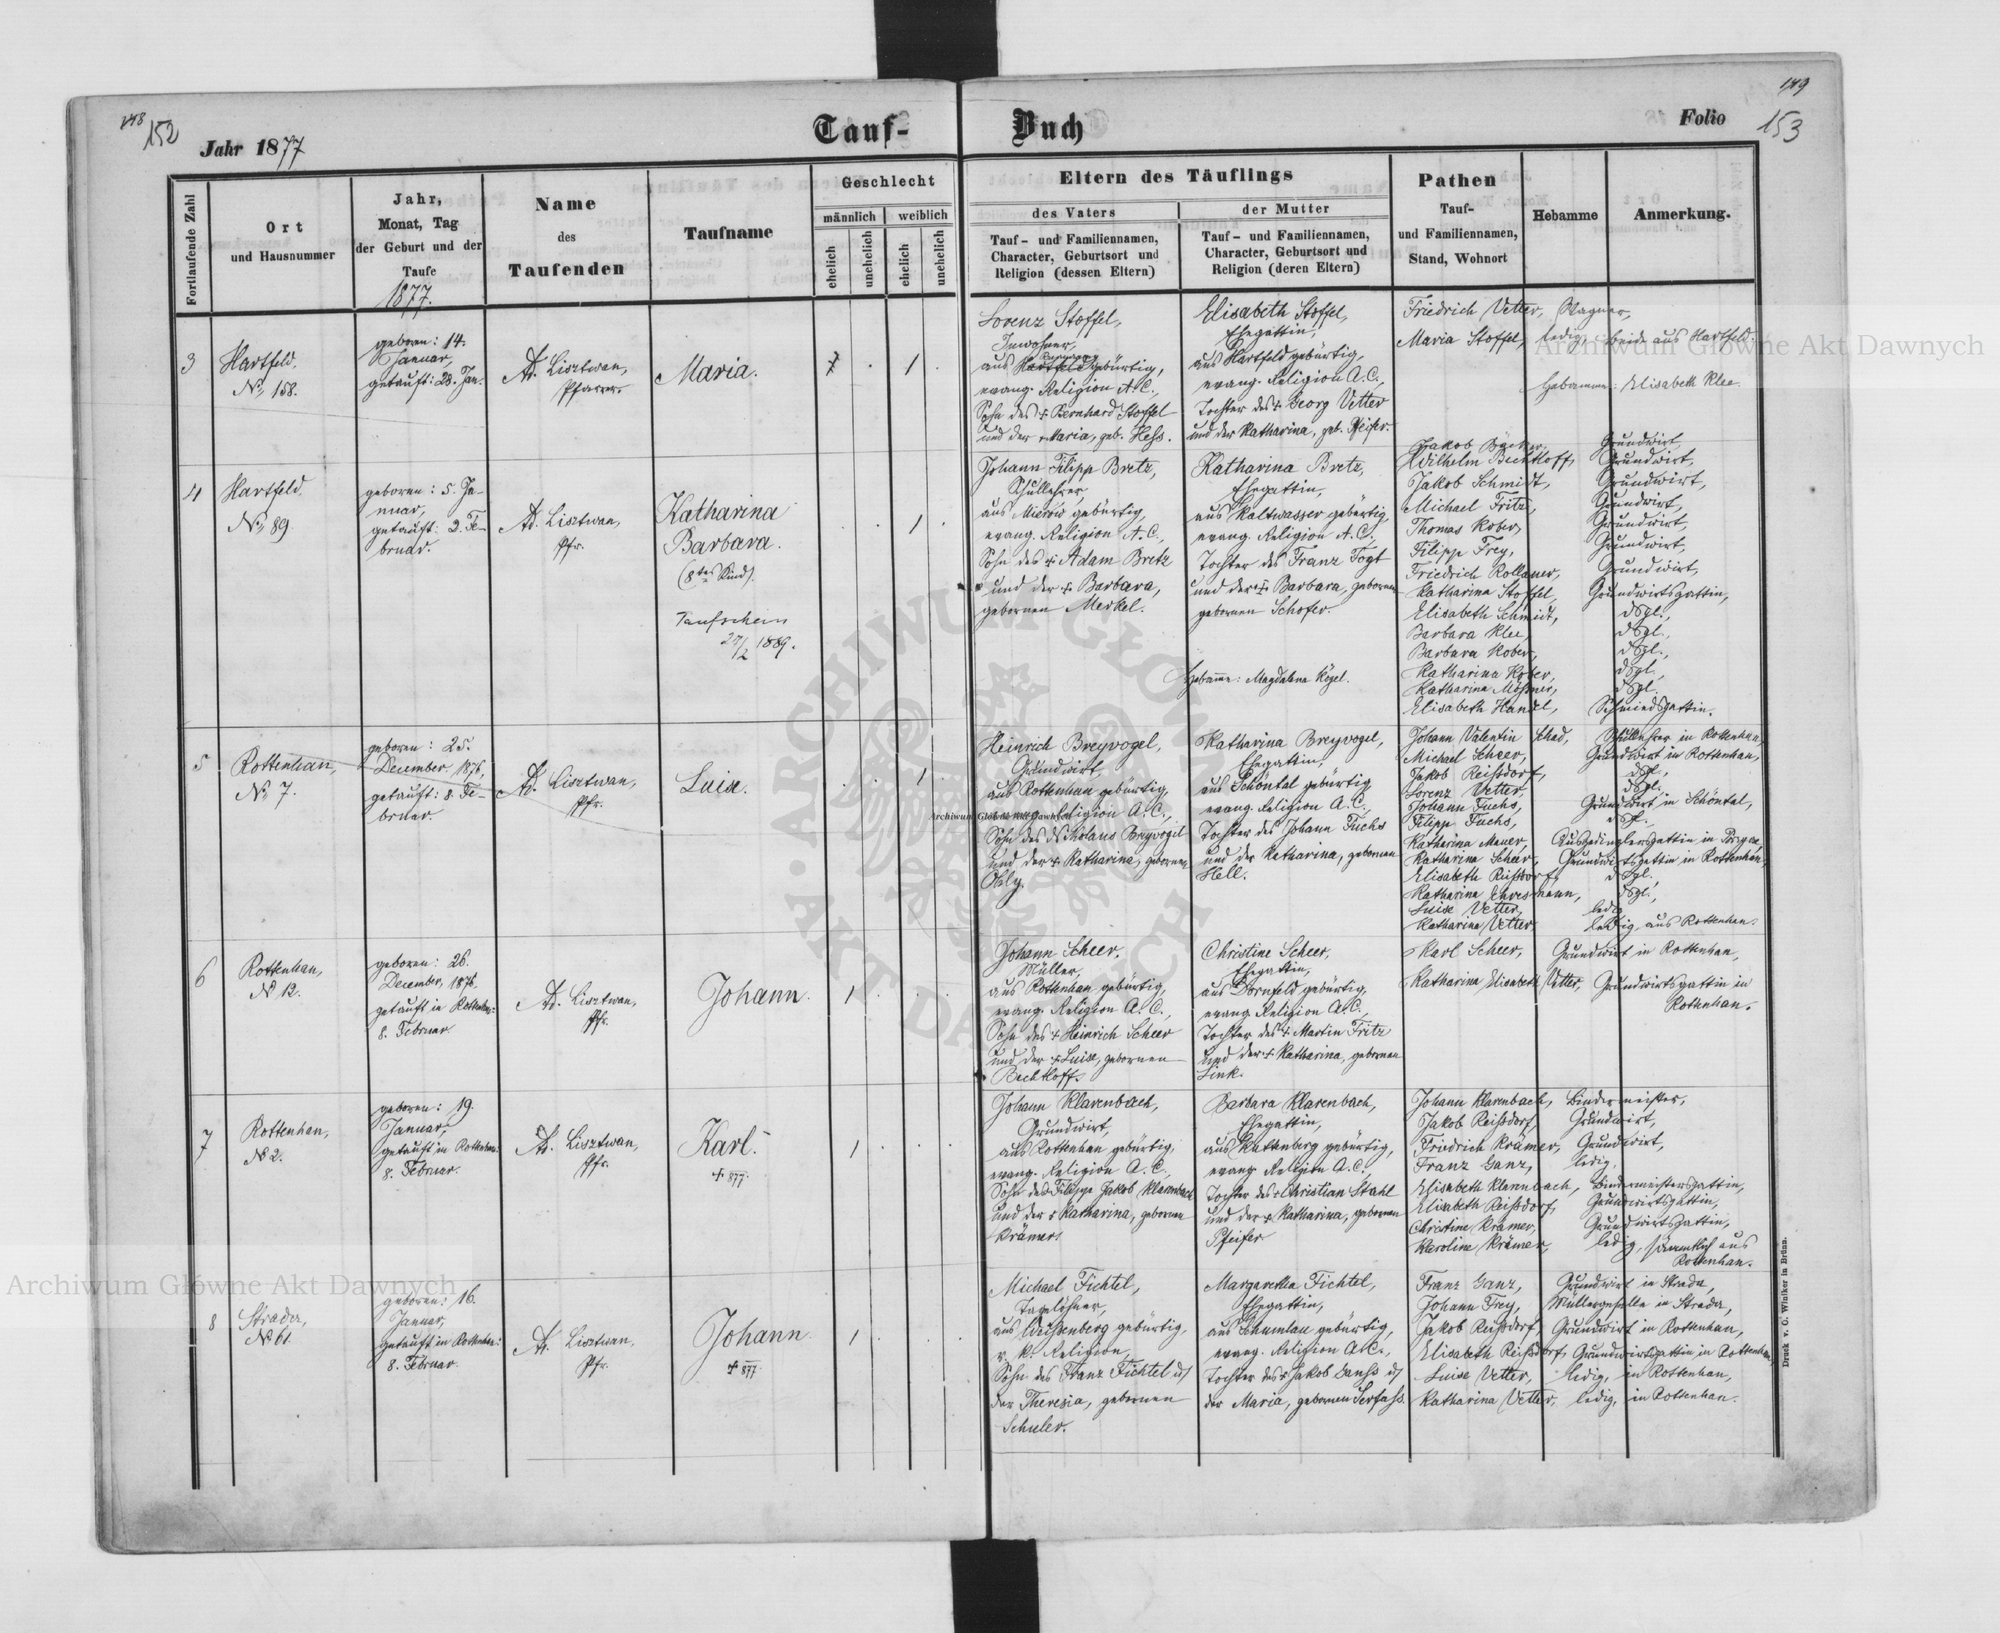 148
152
Jahr 1877
Tauf-
Buch
Folio
149
153
Fortlaufende Zahl
Ort
und Hausnummer
Jahr,
Monat, Tag
der Geburt und der
Taufe
1877.
Name
des
Taufenden
Taufname
Geschlecht
männlich
weiblich
ehelich
unehelich
ehelich
unehelich
Eltern des Täuflings
des Vaters
Tauf- und Familiennamen,
Character, Geburtsort und
Religion (dessen Eltern)
der Mutter
Tauf- und Familiennamen,
Character, Geburtsort und
Religion (deren Eltern)
Pathen
Tauf-
und Familiennamen,
Stand, Wohnort
Hebamme
Anmerkung.
3
Hartfeld.
No 158.
geboren: 14.
Januar,
getauft: 28. Jan.
Ad. Lisztwan,
Pfarrer.
Maria.
1
Lorenz Stoffel,
Inwohner,
aus gebürtig,
evang. Religion A.C.,
Sohn des + Bernhard Stoffel
und der + Maria, geb. Hess.
Elisabeth Stoffel,
Ehegattin,
aus Hartfeld gebürtig,
evang. Religion A.C.,
Tochter des + Georg Vetter
und der Katharina, geb. Pfeifer.
Friedrich Vetter, Wagner,
Maria Stoffel, ledig, beide aus Hartfeld.
Hebamme: Elisabeth Klee.
4
Hartfeld.
No 89
geboren: 5. Ja-
nuar,
getauft: 2. Fe-
bruar.
Ad. Lisztwan,
Pfr.
Katharina
Barbara.
(8tes Kind).
Taufschein
27/2 1889.
1
Johann Filipp Bretz,
Schullehrer,
aus Mierów gebürtig,
evang. Religion A.C.,
Sohn des + Adam Bretz
und der + Barbara,
gebornen Merkel.
Katharina Bretz,
Ehegattin,
aus Kaltwasser gebürtig,
evang. Religion A.C.,
Tochter des Franz Fogt
und der + Barbara, gebornen
gebornen Schofer.
Hebamme: Magdalena Kögel.
Jakob Bäcker, Grundwirt
Wilhelm Bechtloff, Grundwirt,
Jakob Schmidt, Grundwirt,
Michael Fritz, Grundwirt,
Thomas Kober, Grundwirt,
Filipp Frey, Grundwirt,
Friedrich Rollauer, Grundwirt,
Katharina Stoffel, Grundwirtsgattin,
Elisabeth Schmidt, dsgl.,
Barbara Klee, dsgl.,
Barbara Kober, dsgl.,
Katharina Kober, dsgl.,
Katharina Mössner, dsgl.
Elisabeth Handl, Schmiedsgattin.
5
Rottenhan,
No 7.
geboren: 25.
December 1876,
getauft: 8. Fe-
bruar
Ad. Lisztwan,
Pfr.
Luise.
1
Heinrich Breyvogel,
Grundwirt,
aus Rottenhan gebürtig,
evang. Religion A.C.,
Sohn des Nikolaus Breyvogel
und der + Katharina, gebornen
Obly.
Katharina Breyvogel,
Ehegattin,
aus Schöntal gebürtig
evang. Religion A.C.,
Tochter des Johann Fuchs
und der Katharina, gebornen
Hell.
Johann Valentin Schad, Schullehrer in Rottenhan,
Michael Scheer, Grundwirt in Rottenhan,
Jakob Reissdorf, dsgl.,
Lorenz Vetter, dsgl.,
Johann Fuchs, Grundwirt in Schöntal,
Filipp Fuchs,
Katharina Mauer, Ausgedinglersgattin in
Katharina Scheer, Grundwirtsgattin in Rottenhan,
Elisabeth Reissdorf, dsgl.,
Katharina Ehresmann, dsgl.,
Luise Vetter, ledig
Katharina Vetter, ledig, aus Rottenhan.
6
Rottenhan,
No 12.
geboren: 26.
December, 1876,
getauft in Rottenhan:
8. Februar.
Ad. Lisztwan,
Pfr.
Johann.
1
Johann Scheer,
Müller,
aus Rottenhan gebürtig,
evang. Religion A.C.,
Sohn des + Heinrich Scheer
und der + Luise, gebornen
Bechtloff.
Christine Scheer,
Ehegattin,
aus Dornfeld gebürtig,
evang. Religion A.C.,
Tochter des + Martin Fritz
und der + Katharina, gebornen
Link.
Karl Scheer, Grundwirt in Rottenhan,
Katharina Elisabeth Vetter, Grundwirtsgattin in
Rottenhan.
7
Rottenhan,
No 2.
geboren: 19.
Januar,
getauft in Rottenhan:
8. Februar.
Ad. Lisztwan,
Pfr.
Karl.
+ 877.
1
Johann Klarenbach,
Grundwirt,
aus Rottenhan gebürtig,
evang. Religion A.C.,
Sohn des Filipp Jakob Klarenbach
und der + Katharina, gebornen
Krämer.
Barbara Klarenbach,
Ehegattin,
aus Kuttenberg gebürtig,
evang. Religion A.C.,
Tochter des + Christian Stahl
und der + Katharina, gebornen
Pfeifer
Johann Klarenbach, Bindermeister,
Jakob Reissdorf, Grundwirt,
Friedrich Krämer, Grundwirt,
Franz Ganz, ledig,
Elisabeth Klarenbach, Bindermeistersgattin,
Elisabeth Reissdorf, Grundwirtsgattin,
Christine Krämer, Grundwirtsgattin,
Karoline Krämer, ledig, sämmtlich aus
Rottenhan.
8
Strader,
No 61.
geboren: 16.
Januar,
getauft in Rottenhan:
8. Februar.
Ad. Lisztwan,
Pfr.
Johann.
+ 877.
1
Michael Fichtel,
Tagelöhner,
aus Weissenberg gebürtig,
r. k. Religion,
Sohn des Franz Fichtel u/
der Theresia, gebornen
Schuler.
Margaretha Fichtel,
Ehegattin,
aus Schumlau gebürtig,
evang. Religion A.C.,
Tochter des + Jakob u/
der Maria, gebornen Serfass.
Franz Ganz, Grundwirt in Strada,
Johann Frey, Müllergeselle in Strada,
Jakob Reissdorf, Grundwirt in Rottenhan,
Elisabeth Reissdorf, Grundwirtsgattin in Rottenhan,
Luise Vetter, ledig, in Rottenhan,
Katharina Vetter, ledig, in Rottenhan.
Druck v. C. Winiker in Brünn.
Archiwum Główne Akt Dawnych
Archiwum Główne Akt Dawnych
Archiwum Główne Akt Dawnych
ARCHIWUM GŁÓWNE AKT DAWNYCH